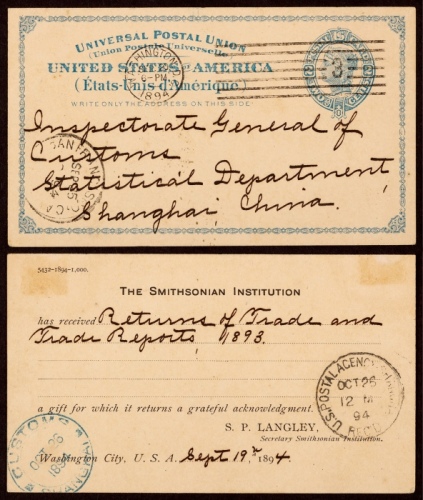 UNIVERSAL POSTAL UNION
(Union Postale Universelle)
UNITED STATES OF AMERICA
(États-Unis d'Amérique)
WRITE ONLY THE ADDRESS ON THIS SIDE
WASHINGTON, D.C.
6-PM
1894
3
Inspectorate General of
Customs
Statistical Department,
Shanghai, China.
SAN FRANCISCO, CAL
SEP 25
5432-1894-1,000.
THE SMITHSONIAN INSTITUTION
has received Returns of Trade and
Trade Reports, 1893.
a gift for which it returns a grateful acknowledgment.
S. P. LANGLEY,
Secretary Smithsonian Institution.
Washington City, U. S. A. Sept 19, 1894
U.S. POSTAL AGENCY
OCT 26
12 M
94
REC'D
CUSTOMS
OCT 26
1894